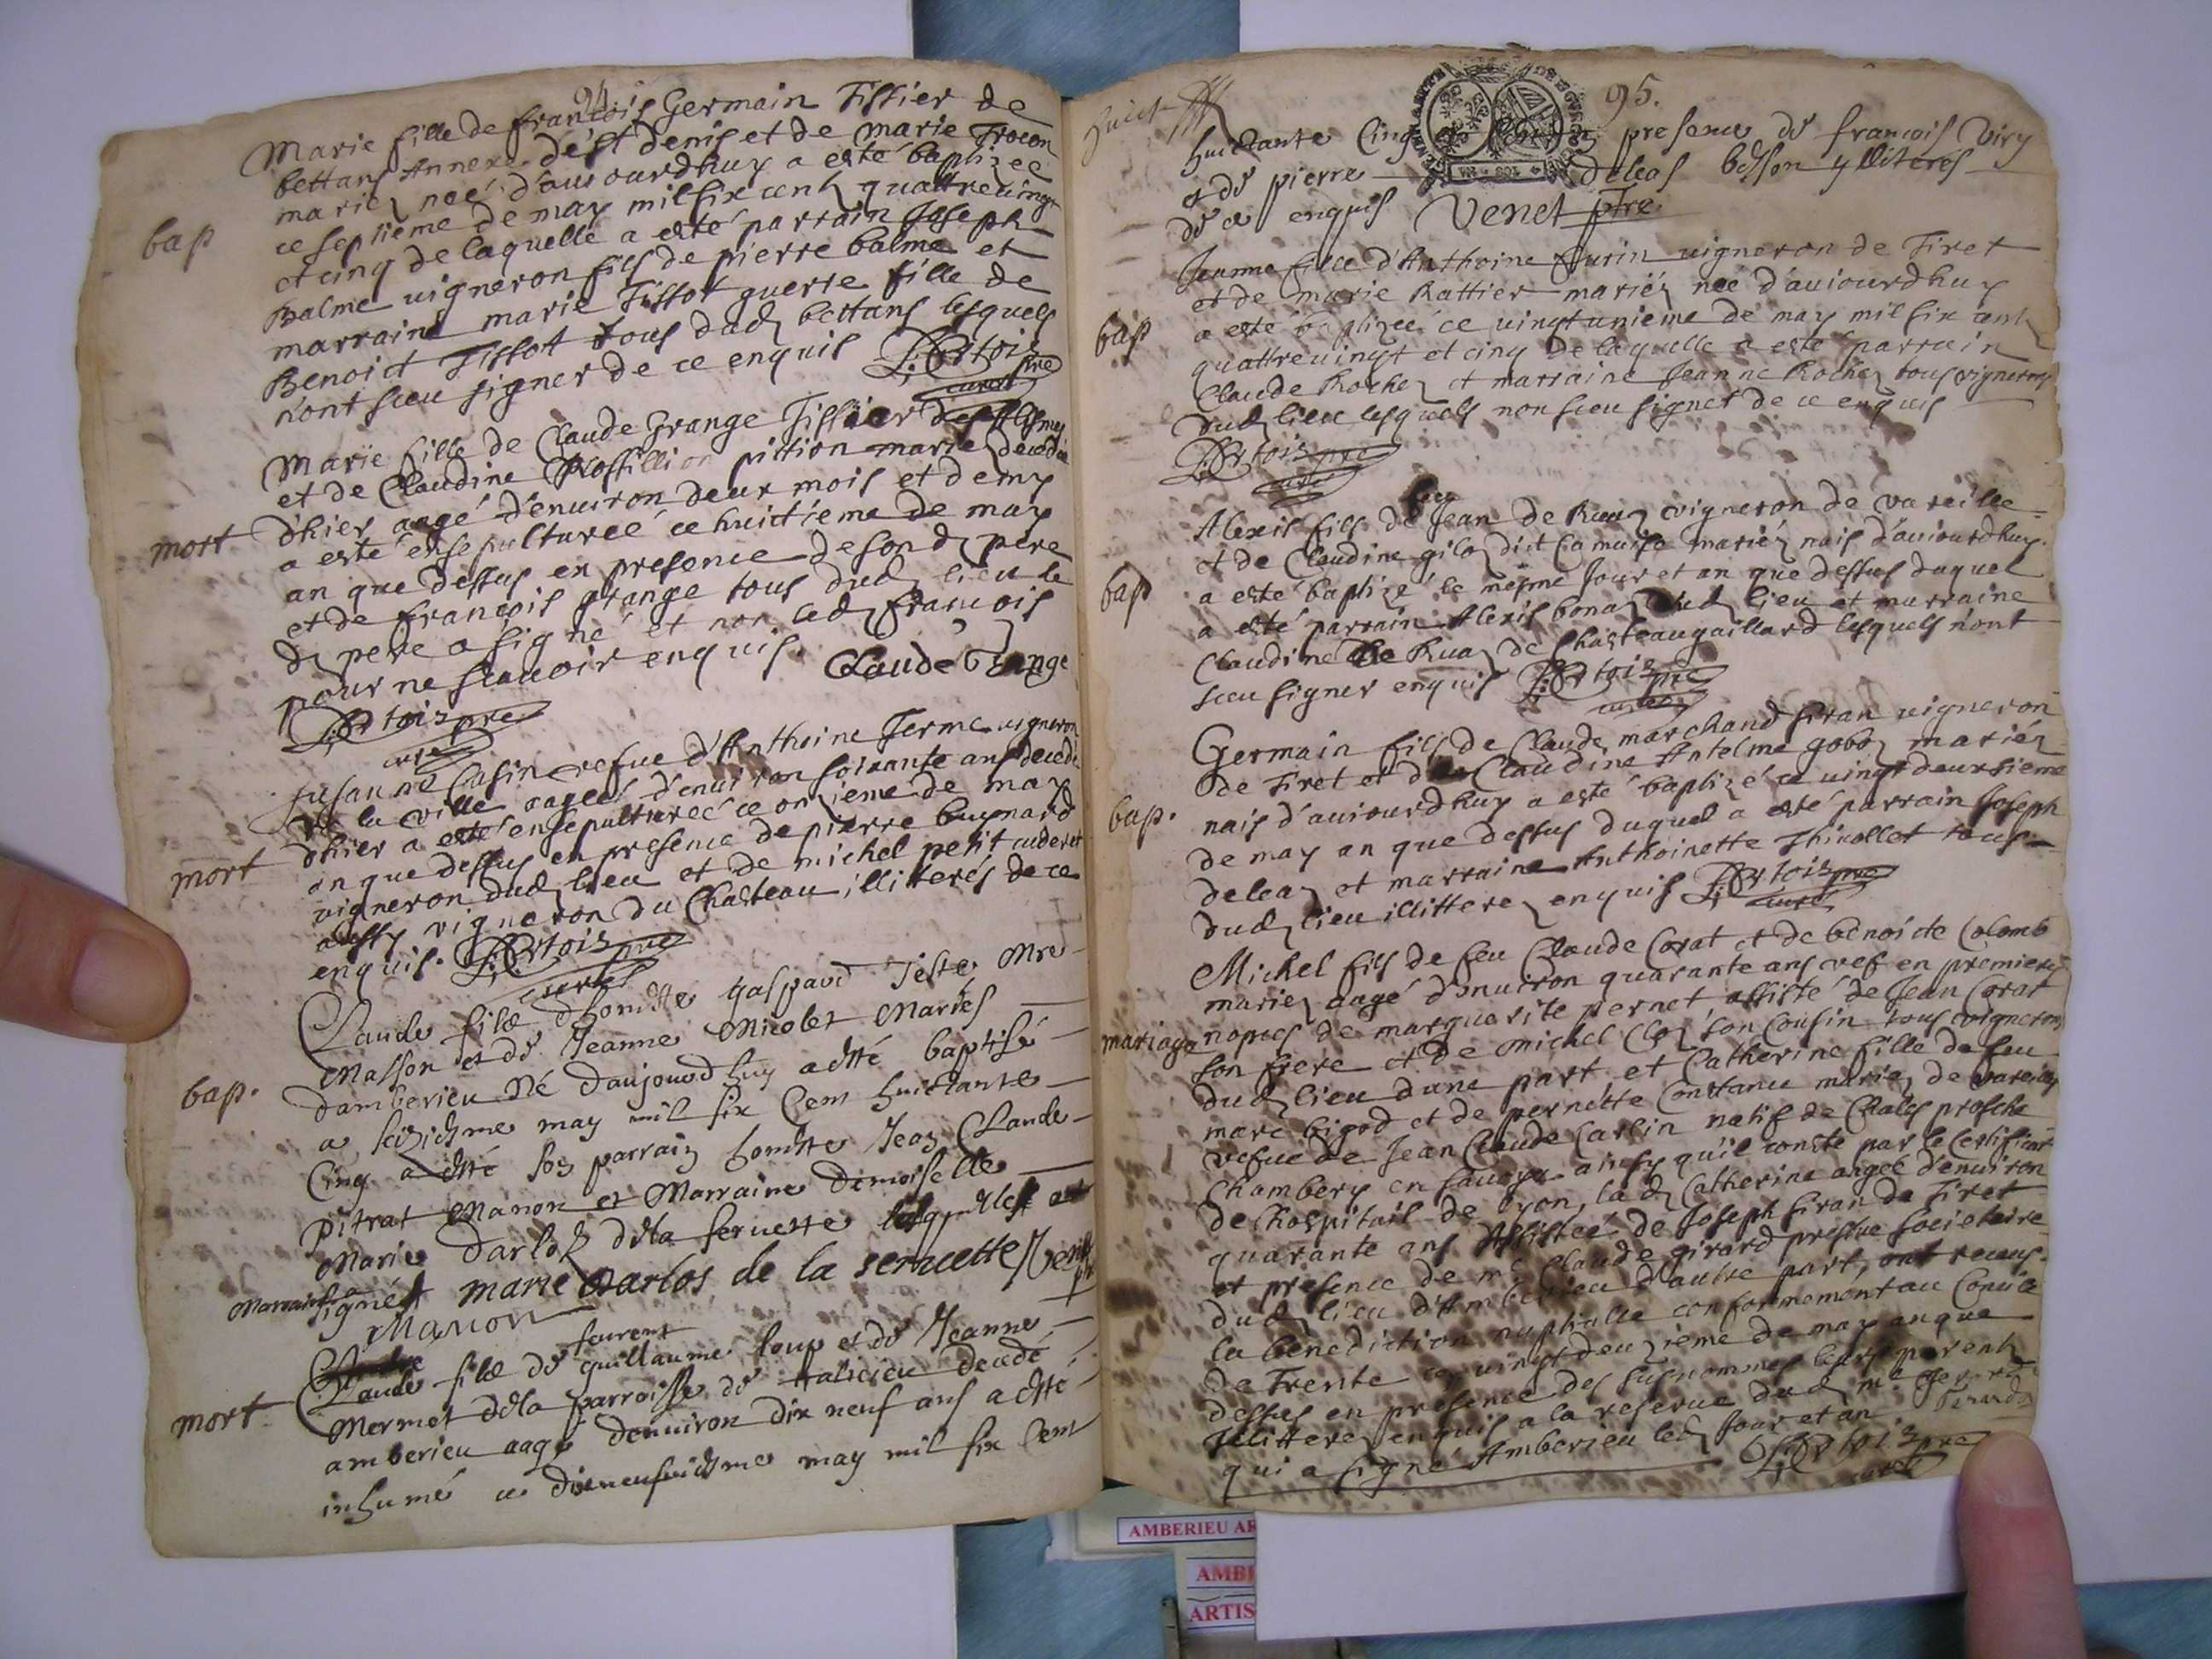 94
Marie fille de françois Germain Tissier de
bettans Annexe de St denis et de marie Trocon
mariez neé d'auiourdhuy a esté baptizeé
ce septieme de may mil six cents quattreuingt
et cinq de laquelle a esté parrain Joseph
bap
Balme uigneron fils de pierre balme et
marraine marie Tissot guerre fille de
Benoict Tissot tous dudz bettans lesquels
n'ont sceu signer de ce enquis
pre
curé
Marie fille de Claude Grange Tissier des
et de Claudine Rossillion pittion mariez decedeé
d'hier aagé d'enuiron deux mois et demy
mort
a esté ensepultureé ce huictieme de may
an que dessus en presence de sondz pere
et de françois grange tous dudz lieu le
dz pere a signé et non ledz françois
pour ne scauoir enquis. Claude Grange
pre
curé
Susanne Cusin vefue d'Anthoine Terme uigneron
de la ville aageé d'enuiron soixante ans decedeé
d'hier a esté ensepultureé ce onzieme de may
an que dessus en presence de pierre buynard
mort
vigneron dudz lieu et de michel petit
aussy vigneron du Chasteau illiterés de ce
enquis.
pre
curé
Claude filz d'honeste gaspard Mre
Masson et de Jeanne Nicolet Mariés
damberieu Né daujourdhuy a esté baptisé
bap.
ce seizieme may mil six Cent huictante
Cinq a esté son parrain honeste Jean Claude
pitrat Manon et Marraine Demoiselle
Marie Darloz de la seruette lesquelles ont
signés marie Darlos de la seruette Venet
ptre
Manon
Laurent
Claude filz de guillaume loup et de Jeanne
Mermet de la parroisse de decedé
mort
amberieu aagé denuiron dix neuf ans a esté
inhumé ce dixneufuiesme may mil six Cent
95.
huict
huictante Cinq presence de francois Viry
et de pierre deleas illiterés
de ce enquis Venet ptre
Jeanne fille d'Anthoine uigneron de Tiret
et de marie Rattier mariéz neé d'auiourdhuy
a esté baptizeé ce uingt unieme de may mil six cents
bap
quattreuingt et cinq de laquelle a esté parrain
Claude Rochez et marraine Jeanne Rochez tous vignerons
dudz lieu lesquels non sceu signer de ce enquis
pre
curé
Alexis fils de Jean de Ruaz vigneron de vareille
et de Claudine giloz dict Camuse mariéz nais d'auiourdhuy
a esté baptizé le mesme Jour et an que dessus duquel
bap
a esté parrain Alexis bonaz dudz lieu et marraine
Claudine de Ruaz de Chasteaugaillard lesquels n'ont
sceu signer enquis
pre
curé
Germain fils de Claude marchand siran uigneron
de Tiret et de Claudine Antelme goboz mariéz
nais d'auiourdhuy a esté baptizé ce uingt deuxsieme
bap.
de may an que dessus duquel a esté parrain Joseph
deleaz et marraine Anthoinette Thiuollet tous
dudz lieu illitterez enquis
pre
curé
Michel fils de feu Claude Corat et de benoicte Colomb
mariez aagé d'enuiron quarante ans vef en premieres
mariage nopces de marguerite pernet assisté de Jean Corat
son frere et de michel Cloz son Cousin tous vignerons
dudz lieu dune part et Catherine fille de feu
marc bigod et de pernette Constance mariez de vareille
vefue de Jean Claude Carlin natif de Chales prosche
Chambery en sauoye ainsy qu'il conste par le Certificat
de l'hospitail de lyon, ladz Catherine aageé d'enuiron
quarante ans Assisteé de Joseph siran de Tiret
et presence de mre Claude girard prestre societaire
dudz lieu d'Amberieu d'autre part, ont receus
la benediction nuptialle conformement au Concile
de Trente ce uingt deuxieme de may an que
dessus en presence des susnommes leurs parents
Illitterez enquis a la reserue dudz mre gerard
qui a signé, Amberieu ledz Jour et an
pre
curé
AMBERIEU AR
AMBI
ARTIS